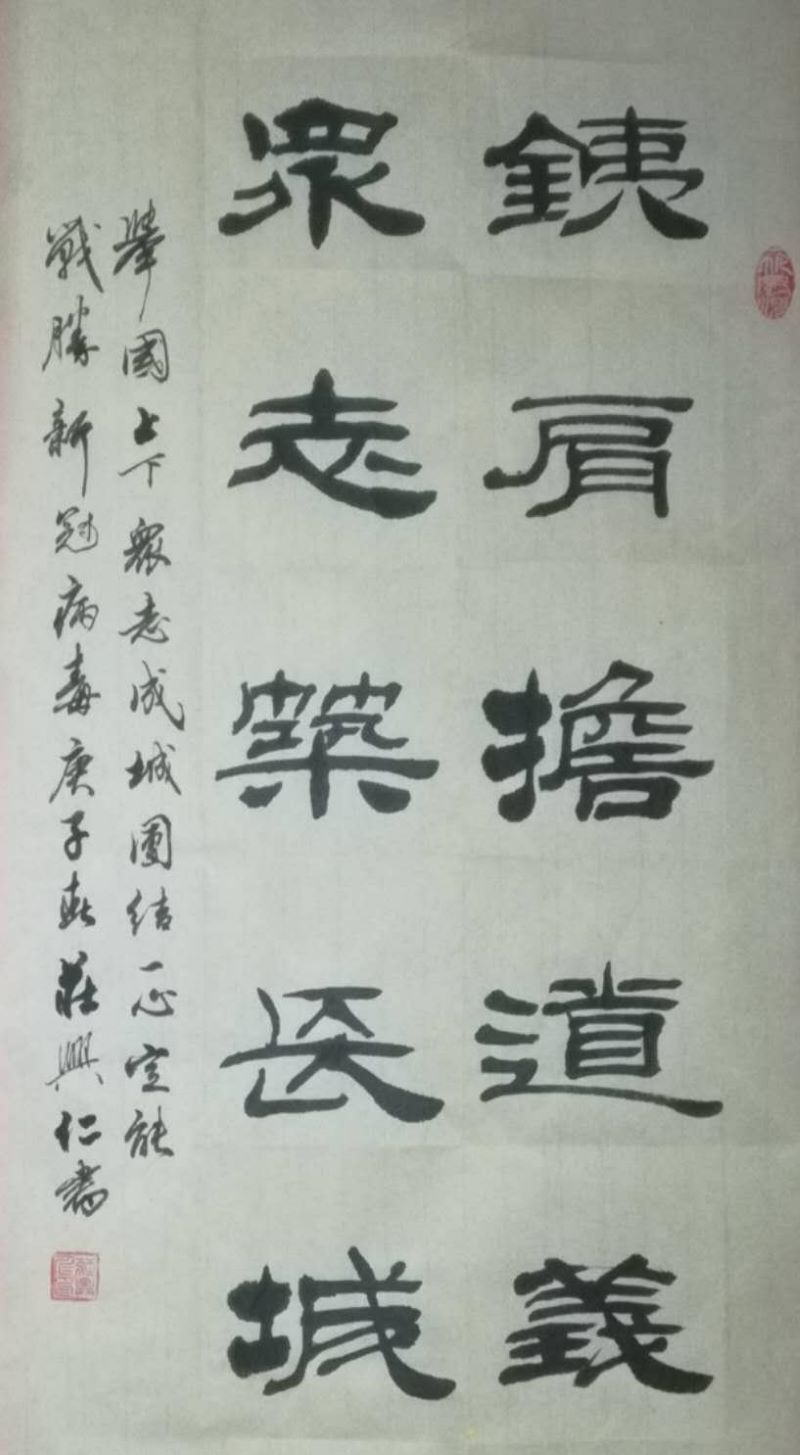 銕肩擔道義
眾志築長城
舉國上下眾志成城團結一心定能
戰勝新冠病毒庚子春莊興仁書